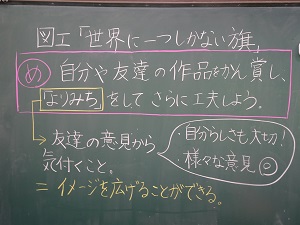 図工「世界に一つしかない旗」
め 自分や友達の作品をかん賞し、
「よりみち」をして さらに工夫しよう。
→ 友達の意見から
気付くこと。
= イメージを広げることができる。
・自分らしさも大切!
・様々な意見◎